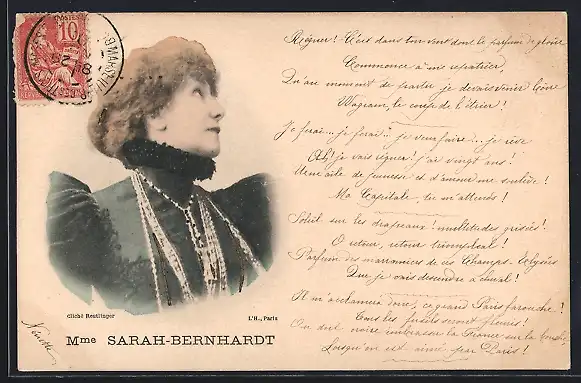 POSTES
10
Régner ! C'est dans ton vent dont le parfum de gloire
Commence à me rapatrier,
Qu'au moment de partir je devais venir boire
Wagram, le coup de l'étrier !
Je ferai... je ferai... je veux faire... je rêve
Ah ! je vais régner ! j'ai vingt ans !
Une aile de jeunesse et d'amour me soulève !
Ma Capitale, tu m'attends !
Soleil sur les drapeaux ! multitudes grisées !
O retour, retour triomphal !
Parfum des marronniers de ces Champs-Elysées
Que je vais descendre à cheval !
Il m'acclamera donc, ce grand Paris farouche !
Tous les fusils seront fleuris !
On doit croire embrasser la France sur la bouche
Lorsqu'on est aimé par Paris !
Cliché Reutlinger
L'H., Paris
Mme SARAH-BERNHARDT